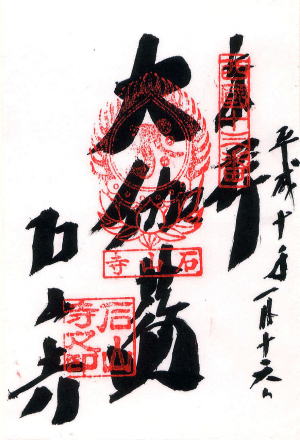 平成十年一月十六日
奉拝
西國十三番
大伽藍
石山寺
石山寺
石山
寺之印